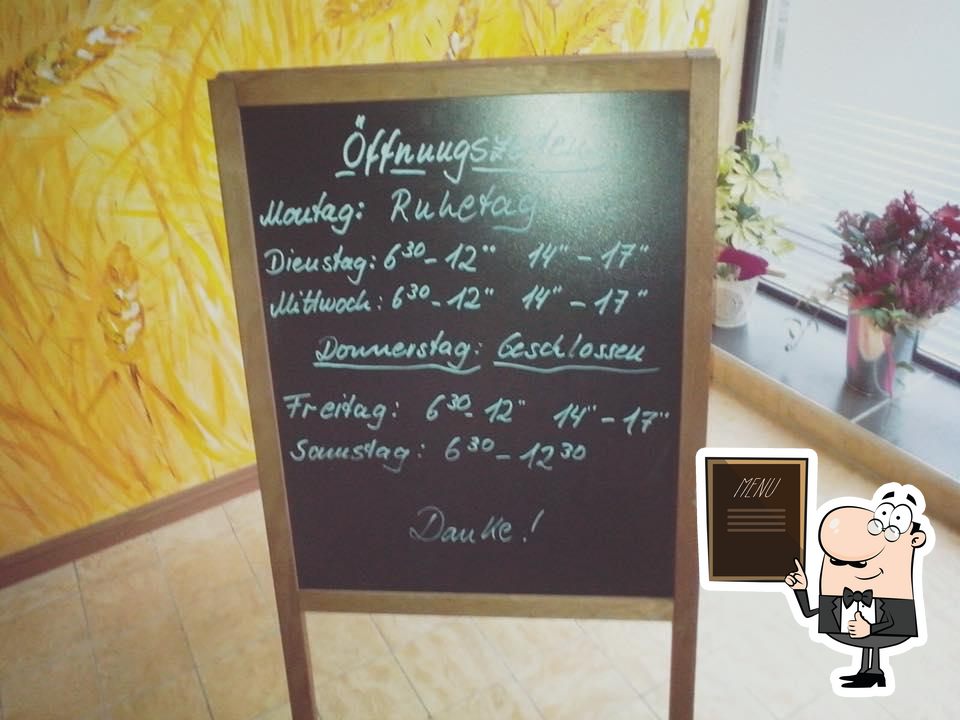 Öffnungszeiten
Montag: Ruhetag
Dienstag: 6³⁰ - 12'' 14'' - 17''
Mittwoch: 6³⁰ - 12'' 14'' - 17''
Donnerstag: Geschlossen
Freitag: 6³⁰ - 12'' 14'' - 17''
Samstag: 6³⁰ - 12³⁰
Danke!
MENU